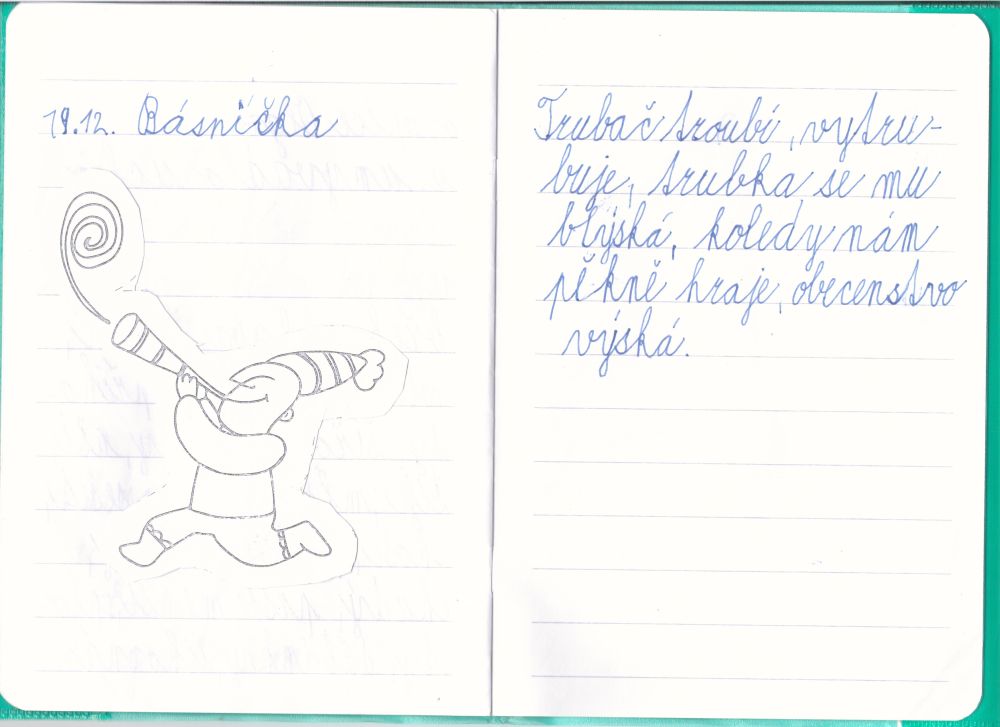 19.12. Básnička
Trubač troubí, vytru-
buje, trubka se mu
blýská, koledy nám
pěkně hraje, obecenstvo
výská.